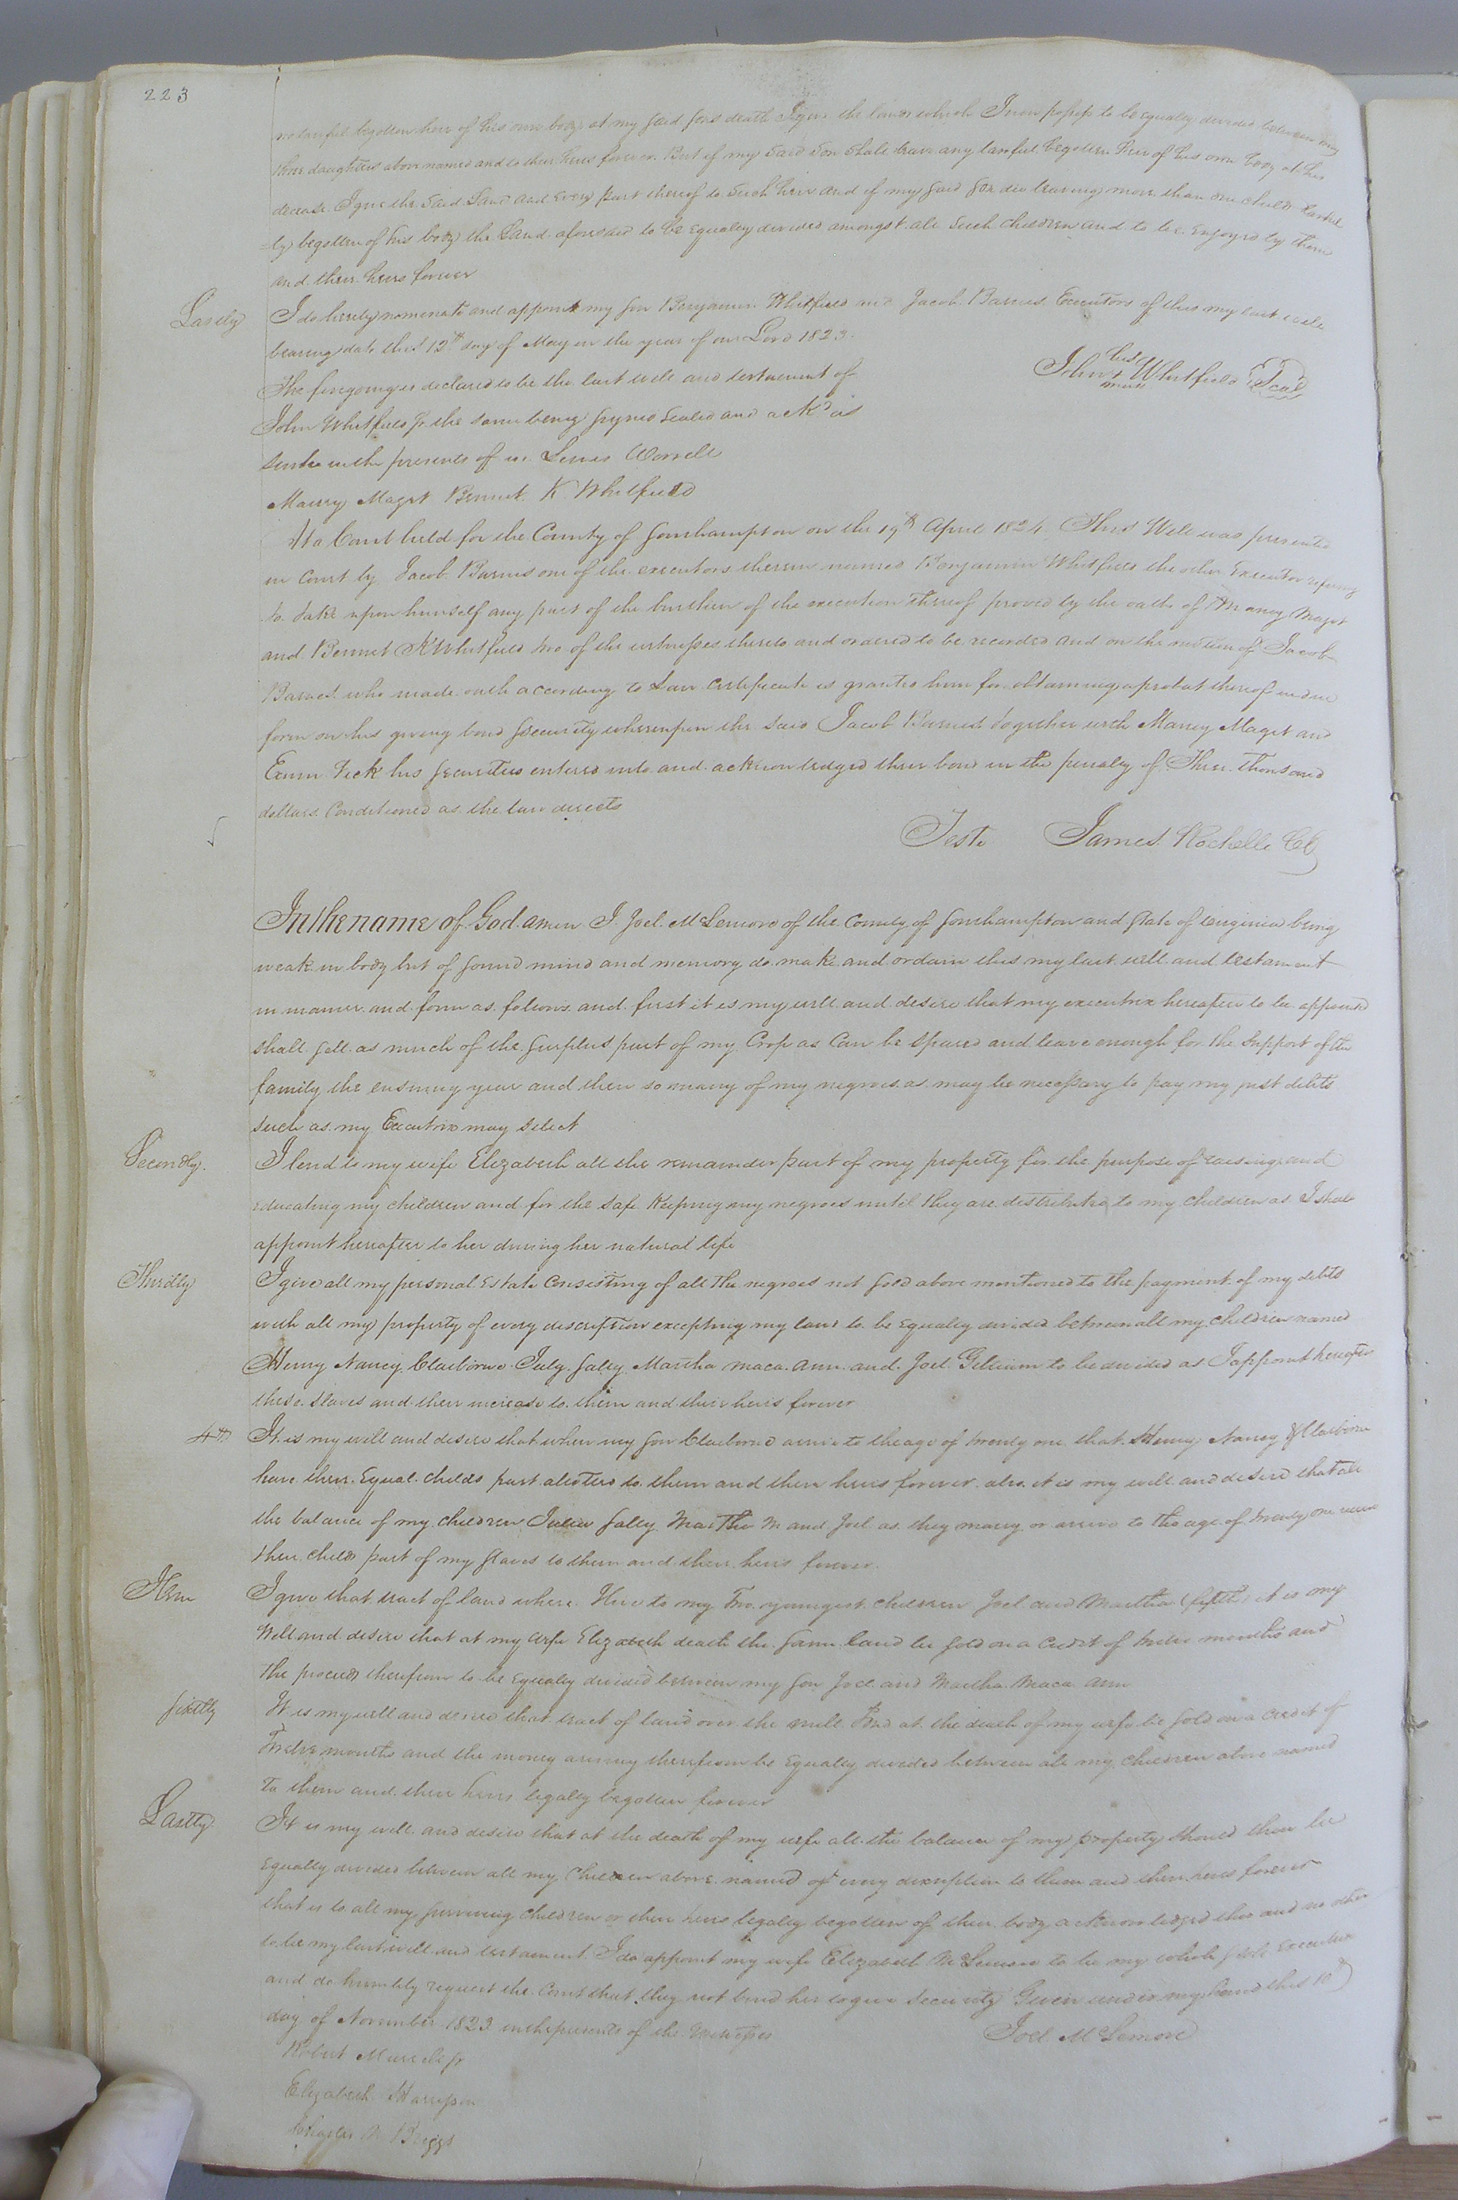 223
no lawful begotten heir of his own body at my said sons death I give the land which I now possess to be equally divided between my
three daughters above named and to their heirs forever. But if my said Son shall leave any lawful begotten heir of his own body at his
decease I give the said Land and every part thereof to such heir and if my said son die leaving more than one child lawful
ly begotten of his body the Land aforesaid to be equally divided amongst all such children and to be enjoyed by them
and their heirs forever
Lastly I do hereby nominate and appoint my son Benjamin Whitfield and Jacob Barnes Executors of this my last will
bearing date this 12th day of May in the year of our Lord 1823.
The foregoing is declared to be the last will and testament of
John his + mark Whitfield Seal
John Whitfield Sr the same being signed sealed and ackd as
such in the presents of us Lewis Worrell
Manry Maget Bennit K Whitfield
At a Court held for the County of Southampton on the 19th April 1824. This Will was presented
in Court by Jacob Barnes one of the executors therein named Benjamin Whitfield the other Executor refusing
to take upon himself any part of the burthen of the execution thereof proved by the oaths of Manry Maget
and Bennet K Whitfield two of the witnesses thereto and ordered to be recorded and on the motion of Jacob
Barnes who made oath according to Law certificate is granted him for obtaining a probat thereof in due
form on his giving bond & security whereupon the said Jacob Barnes together with Manry Maget and
Exum Fick his securities entered into and acknowledged their bond in the penalty of Three thousand
dollars Conditioned as the law directs
Teste James Rochelle CC
In the name of God amen I Joel McLemore of the County of Southampton and state of Virginia being
weak in body but of sound mind and memory do make and ordain this my last will and testament
in manner and form as follows and first it is my will and desire that my executrix hereafter to be appointed
shall sell as much of the surplus part of my Crop as can be spared and leave enough for the support of the
family the ensuing year and then so many of my negroes as may be necessary to pay my just debts
such as my Executrix may select
Secondly. I lend to my wife Elizabeth all the remainder part of my property for the purpose of raising and
educating my children and for the safe keeping my negroes until they are distributed to my children as I shall
appoint hereafter to her during her natural life
Thirdly I give all my personal Estate Consisting of all the negroes not sold above mentioned to the payment of my debts
with all my property of every description excepting my land to be Equally divided between all my children named
Henry Nancy Claiborne July Sally Martha maca ann and Joel Gilliam to be divided as I appoint hereafter
these slaves and their increase to them and their heirs forever
4th It is my will and desire that when my son Claiborne arrive to the age of twenty one that Henry Nancy & Claiborne
have their Equal childs part allotted to them and their heirs forever also it is my will and desire that all
the balance of my children Julia Sally Martha M and Joel as they marry or arrive to the age of twenty one
their childs part of my slaves to them and their heirs forever.
Item I give that tract of land where I live to my Two youngest children Joel and Martha (fifth) it is my
Will and desire that at my wife Elizabeth death the same land be sold on a Credit of twelve months and
the proceeds therefrom to be Equally divided between my son Joel and Martha Maca Ann
sixthly It is my will and desire that tract of land over the mill Pond at the death of my wife be sold on a credit of
Twelve months and the money arising therefrom be Equally divided between all my children above named
To them and their heirs legally begotten forever
Lastly It is my will and desire that at the death of my wife all the balance of my property should then be
Equally divided between all my Children above named of every description to them and their heirs forever
that is to all my surviving children or their heirs legally begotten of their body acknowledged this and no other
to be my last will and testament I do appoint my wife Elizabeth McLemore to be my whole & sole Executrix
and do humbly request the Court that they not bind her to give security Given under my hand this 10th
day of November 1823 in the presents of the Witnesses
Joel McLemore
Robert
Elizabeth Harrison
Charles Briggs